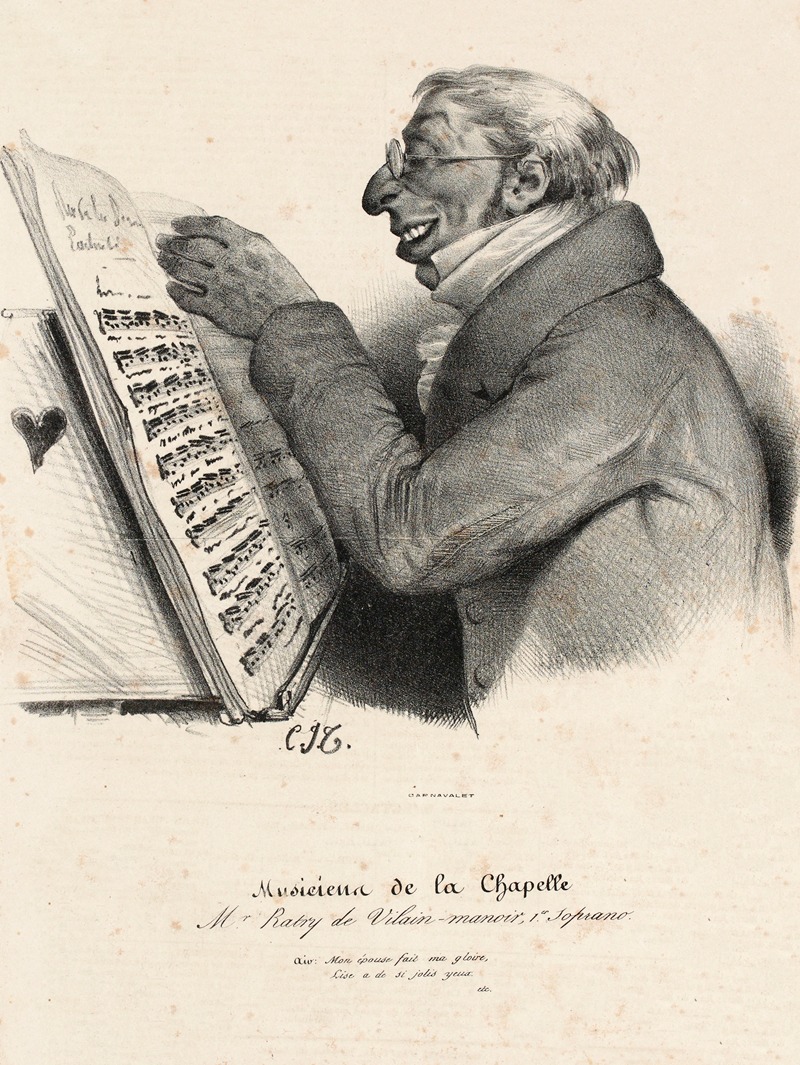 C.J.T.
CARNAVALET
Musiciens de la Chapelle
Mr. Ratry de Vilain-manoir, 1er Soprano.
Air: Mon épouse fait ma gloire,
Lise a de si jolis yeux.
etc.